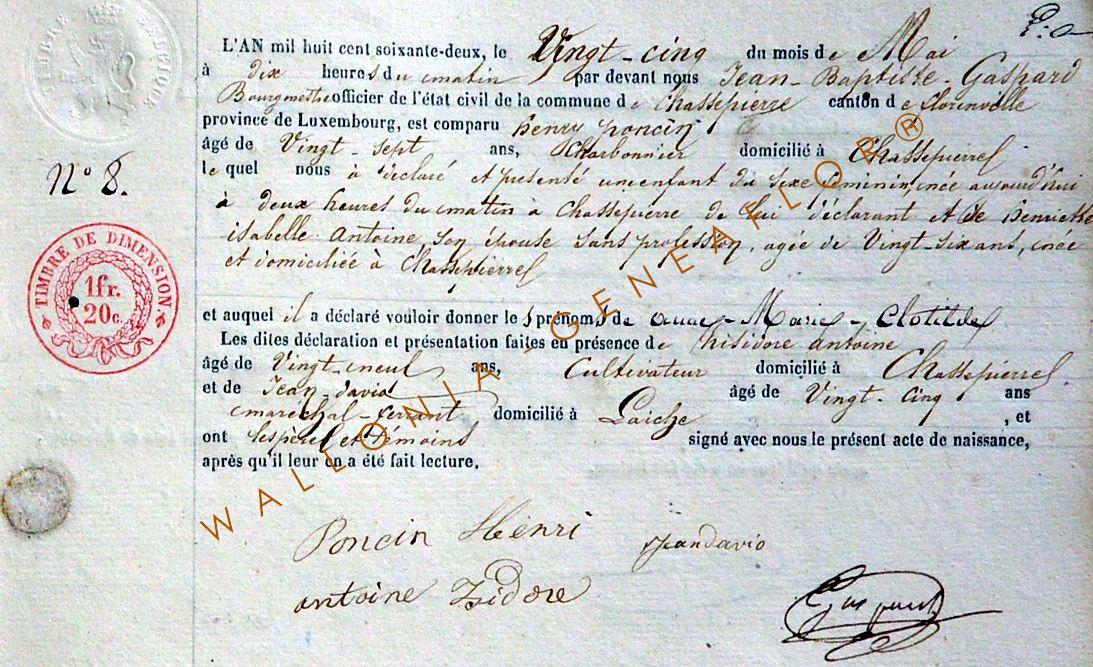 TIMBRE DE DIMENSION
1fr.
20c.
N° 8.
L'AN mil huit cent soixante-deux, le Vingt-cinq du mois de Mai
à dix heures du matin par devant nous Jean-Baptiste-Gaspard
Bourgmestre officier de l'état civil de la commune de Chassepierre canton de florenville
province de Luxembourg, est comparu henry poncin
âgé de Vingt-sept ans, Charbonnier domicilié à Chassepierre
le quel nous à déclaré et présenté un enfant du sexe feminin, née aujourd'hui
à deux heures du matin à Chassepierre de lui déclarant et de henriette
isabelle Antoine, son épouse sans profession, agée de Vingt-six ans, née
et domiciliée à Chassepierre
et auquel il a déclaré vouloir donner les prénoms de anne-Marie-Clotilde
Les dites déclaration et présentation faites en présence de hisidore antoine
âgé de Vingt-neuf ans, Cultivateur domicilié à Chassepierre
et de Jean-david âgé de Vingt-Cinq ans
marechal-ferrant domicilié à Laiche , et
ont les père et témoins signé avec nous le présent acte de naissance,
après qu'il leur en a été fait lecture.
Poncin Henri
Jean david
antoine Izidore
Gaspard
WALLONIA-GENEAFLOR®